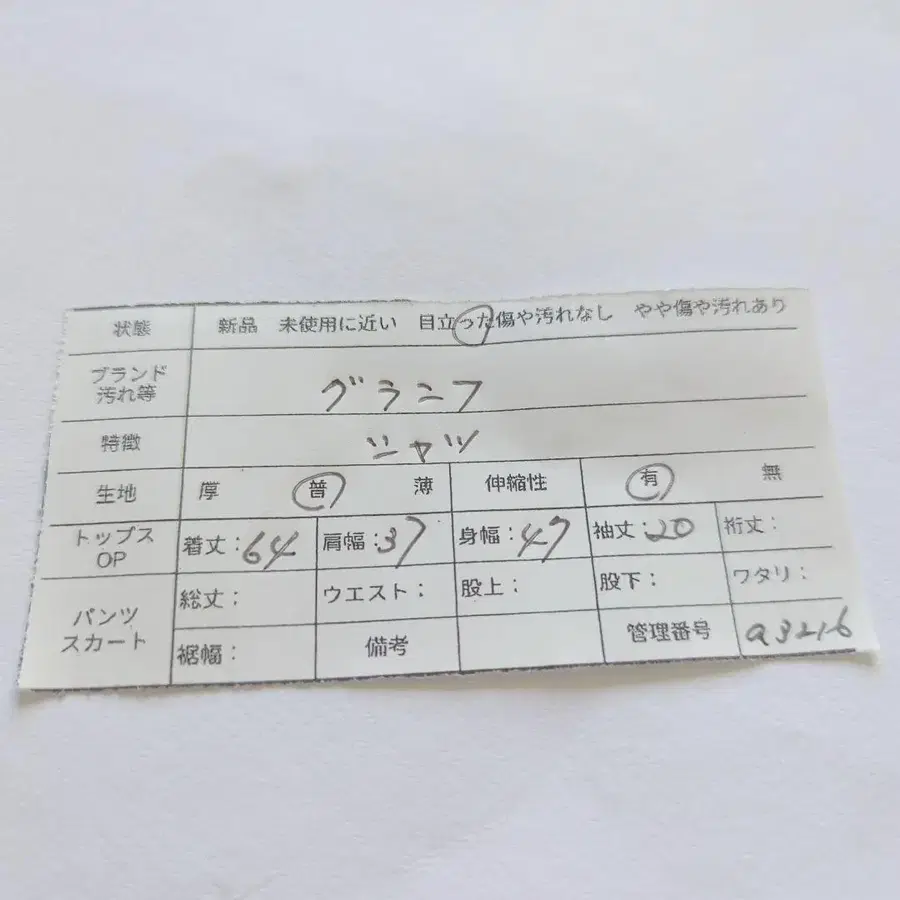 状態 新品 未使用に近い 目立った傷や汚れなし やや傷や汚れあり
ブランド
汚れ等 グラニフ
特徴 シャツ
生地 厚 普 薄 伸縮性 有 無
トップス
OP 着丈：64 肩幅：37 身幅：47 袖丈：20 裄丈：
パンツ
スカート 総丈： ウエスト： 股上： 股下： ワタリ：
裾幅： 備考 管理番号 a3216